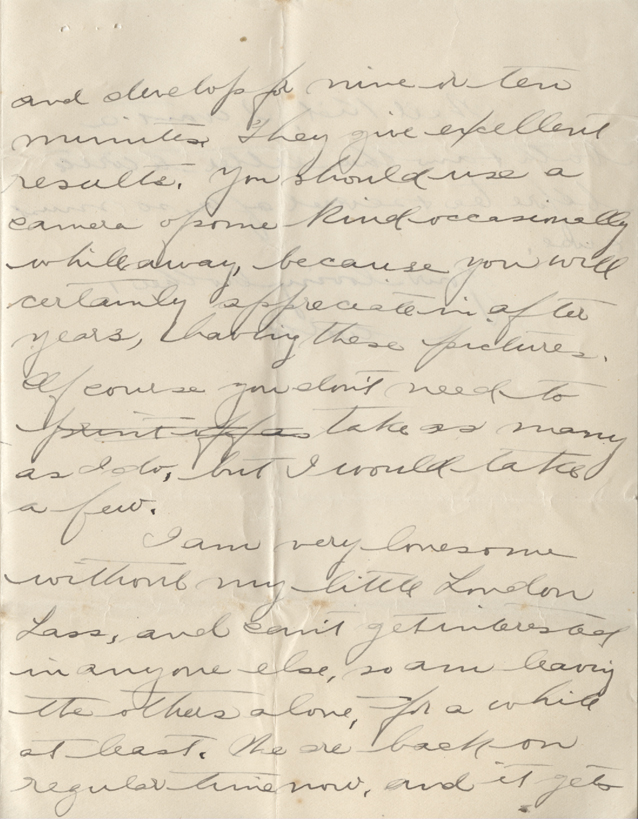 and develop for nine or ten
minutes. They give excellent
results. You should use a
camera of some kind occasionally
while away, because you will
certainly appreciate in after
years, having these pictures.
Of course you don't need to
print up as take as many
as I do, but I would take
a few.
I am very lonesome
without my little London
Lass, and can't get interested
in anyone else, so am leaving
the others alone, for a while
at least. We are back on
regular time now, and it gets